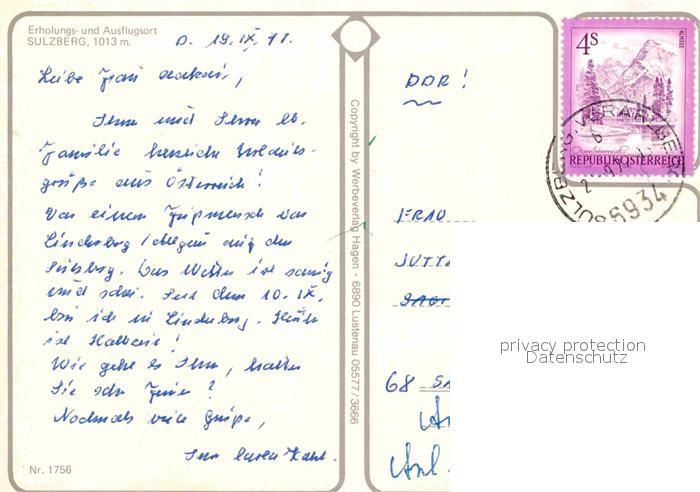 Erholungs- und Ausflugsort
SULZBERG, 1013 m.
D. 19. IX. 77.
Liebe Frau
Ihnen und Ihrer lb.
Familie herzliche Urlaubs-
grüße aus Österreich!
Von einem Fußmarsch von
Lindenberg Allgäu auf den
Sulzberg. Das Wetter ist sonnig
und schön. Seit dem 10. IX.
bin ich in Lindenberg. Heute
ist Halbzeit!
Wie geht es Ihnen, hatten
Sie schon Ferien?
Nochmals viele Grüße,
Ihre
Nr. 1756
Copyright by Werbeverlag Hagen - 6890 Lustenau 05577/3666
DDR!
4S
ALMSEE
REPUBLIK ÖSTERREICH
6934
FRAU
JUTT
68
privacy protection
Datenschutz